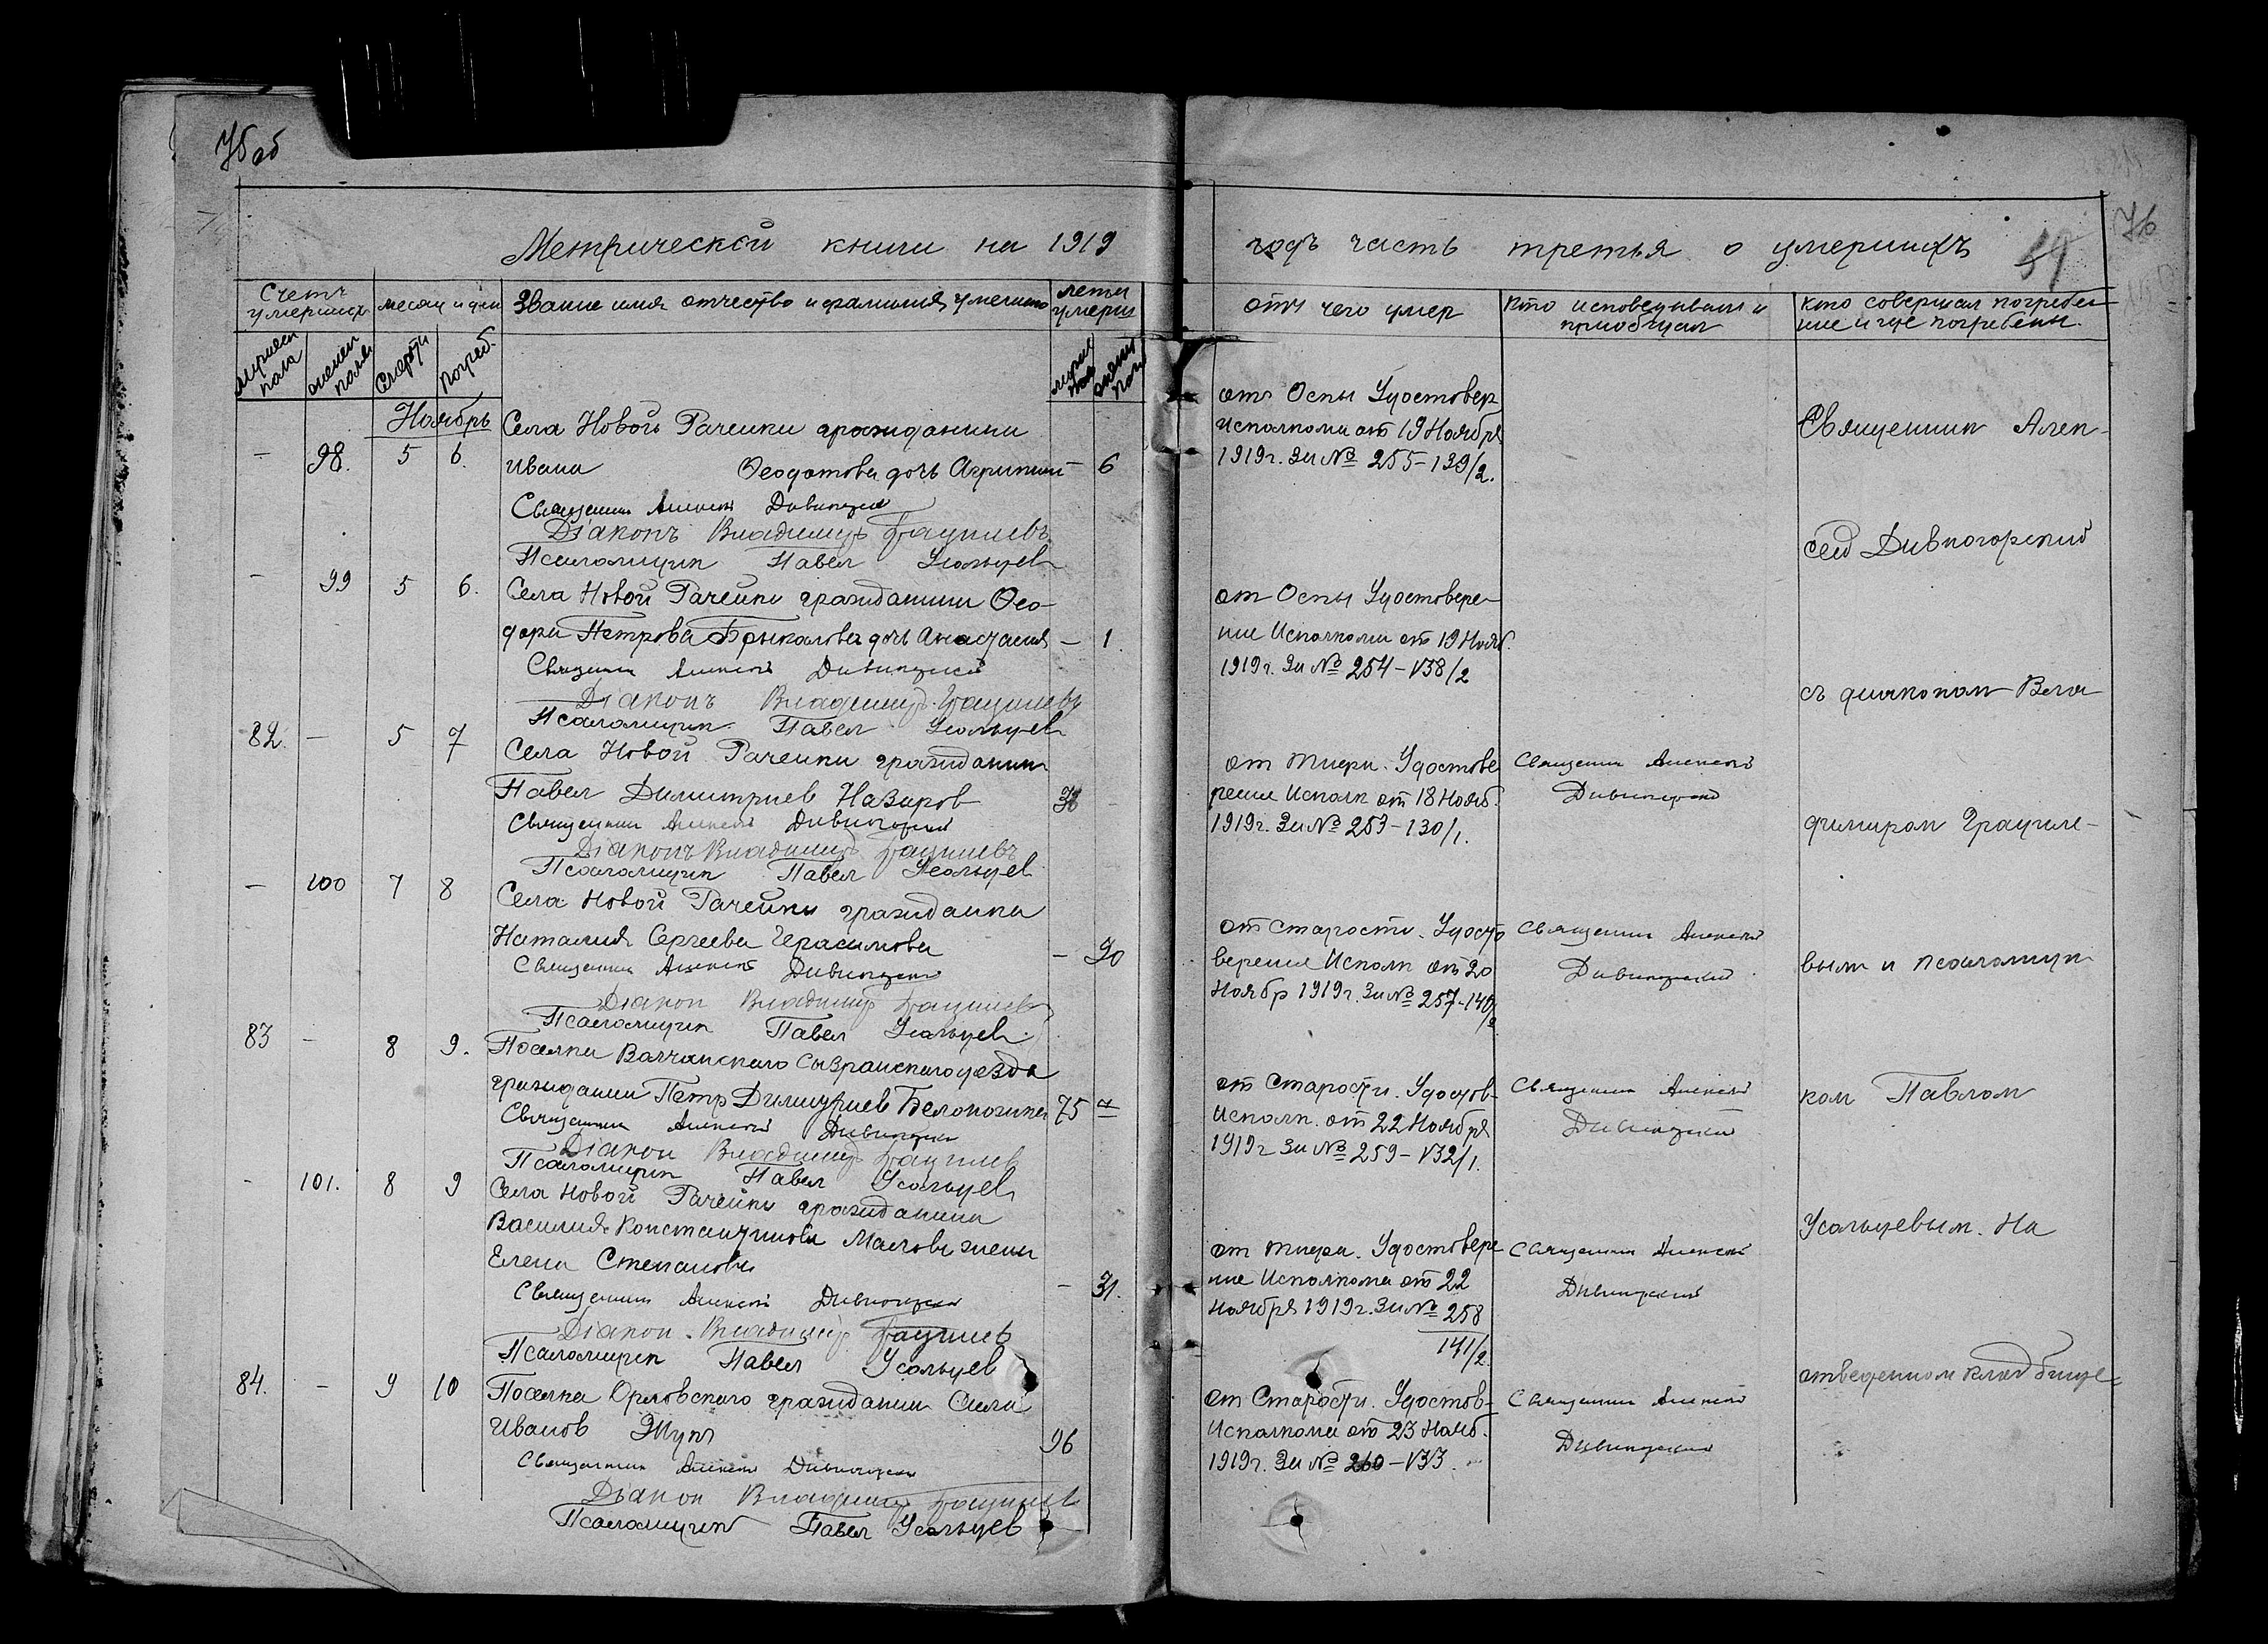 76об
Метрической книги на 1919
Счетъ умерших
месяц и дни
Звание имя отчество и фамилия умешаго
лета умерш
мужеск пола
женск пола
Смерти
Погреб.
мужск пол
женск пол
Ноябрь
- 98. 5 6. Села Новой Рачейки гражданина
Ивана Феодотова дочь Агрипина - 6
Священник Алексей Дивногорский
Діаконъ Владимиръ Грацилевъ
Псаломщик Павел Усольцев
- 99 5 6. Села Новой Рачейки гражданина Фео-
дора Петрова Брыкалова дочь Анастасия - 1.
Священник Алексей Дивногорский
Діаконъ Владимиръ Грацилевъ
Псаломщик Павел Усольцев
82. - 5 7 Села Новой Рачейки гражданин
Павел Димитриев Назаров 38 -
Священник Алексей Дивногорский
Діаконъ Владимиръ Грацилевъ
Псаломщик Павел Усольцев
- 100 7 8 Села Новой Рачейки гражданка
Наталия Сергеева Герасимова - 90
Священник Алексей Дивногорский
Діакон Владимир Грацилев
Псаломщик Павел Усольцев
83 - 8 9. Поселка Валчанскаго Сызранскаго уезда
гражданин Петр Димитриев 75
Священник Алексей Дивногорский
Діакон Владимир Грацилев
Псаломщик Павел Усольцев
- 101. 8 9 Села Новой Рачейки гражданина
Василия Константинова Маслова жена
Елена Степанова - 31.
Священник Алексей Дивногорский
Діакон Владимир Грацилев
Псаломщик Павел Усольцев
84. - 9 10 Поселка Орловскаго гражданин Сила
Иванов Жук 96
Священник Алексей Дивногорский
Діакон Владимир Грацилев
Псаломщик Павел Усольцев
76
годъ часть третья о умершихъ 59
отъ чего умер
Кто исповедывал и приобщал
Кто совершал погребение и где погребены.
отъ Оспы Удостовер
Исполкома от 19 Ноября
1919г. За № 255-139/2.
от Оспы Удостовере-
ние Исполкома от 19 Нояб.
1919г. За № 254-138/2
от тифа. Удостове
рение Исполк от 18 Нояб.
1919г. За № 253-130/1.
Священник Алексей
Дивногорский
от старости. Удосто
верение Исполк от 20
Ноябр 1919г. За № 257-140/2
Священник Алексей
Дивногорский
от Старости. Удостов-
Исполк. от 22 Ноября
1919г За № 259-132/1.
Священник Алексей
Дивногорский
от тифа. Удостовере
ние Исполкома от 22
Ноября 1919г. За № 258
141/2.
Священник Алексей
Дивногорский
от Старости. Удостов-
Исполкома от 23 Нояб.
1919г. За № 260-133.
Священник Алексей
Дивногорский
Священник Алек-
сей Дивногорский
съ диаконом Вла-
димиром Грациле-
вым и псаломщи-
ком Павлом
Усольцевым. На
отведенном кладбище